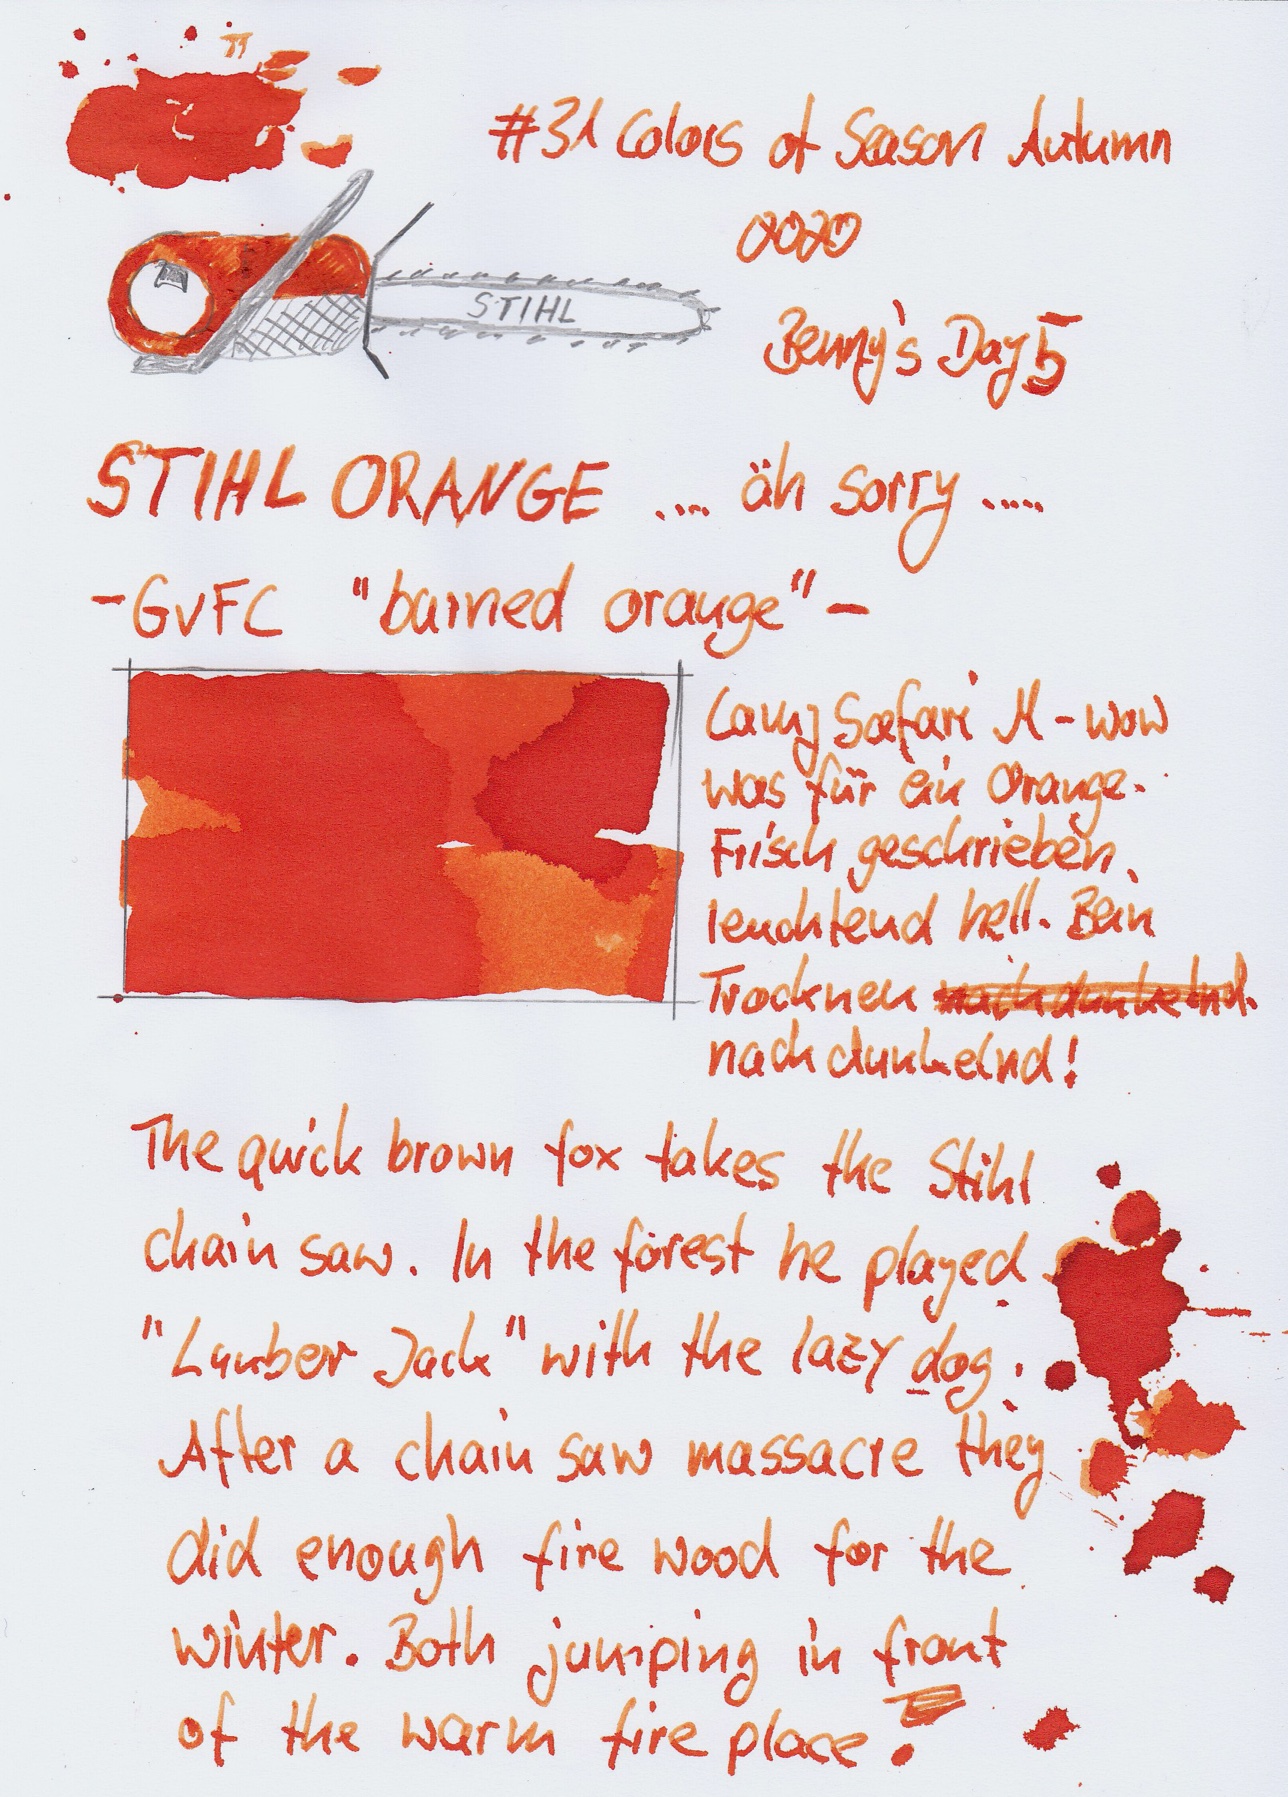 #31 Colors of Season Autumn
2020
STIHL
Benny's Day 5
STIHL ORANGE .... äh sorry .....
- GvFC "burned orange" -
Lamy Safari M - wow
was für ein Orange.
Frisch geschrieben,
leuchtend hell. Beim
Trocknen nachdunkelnd.
nachdunkelnd!
The quick brown fox takes the Stihl
chain saw. In the forest he played
"Lumber Jack" with the lazy dog.
After a chain saw massacre they
did enough fire wood for the
winter. Both jumping in front
of the warm fire place!